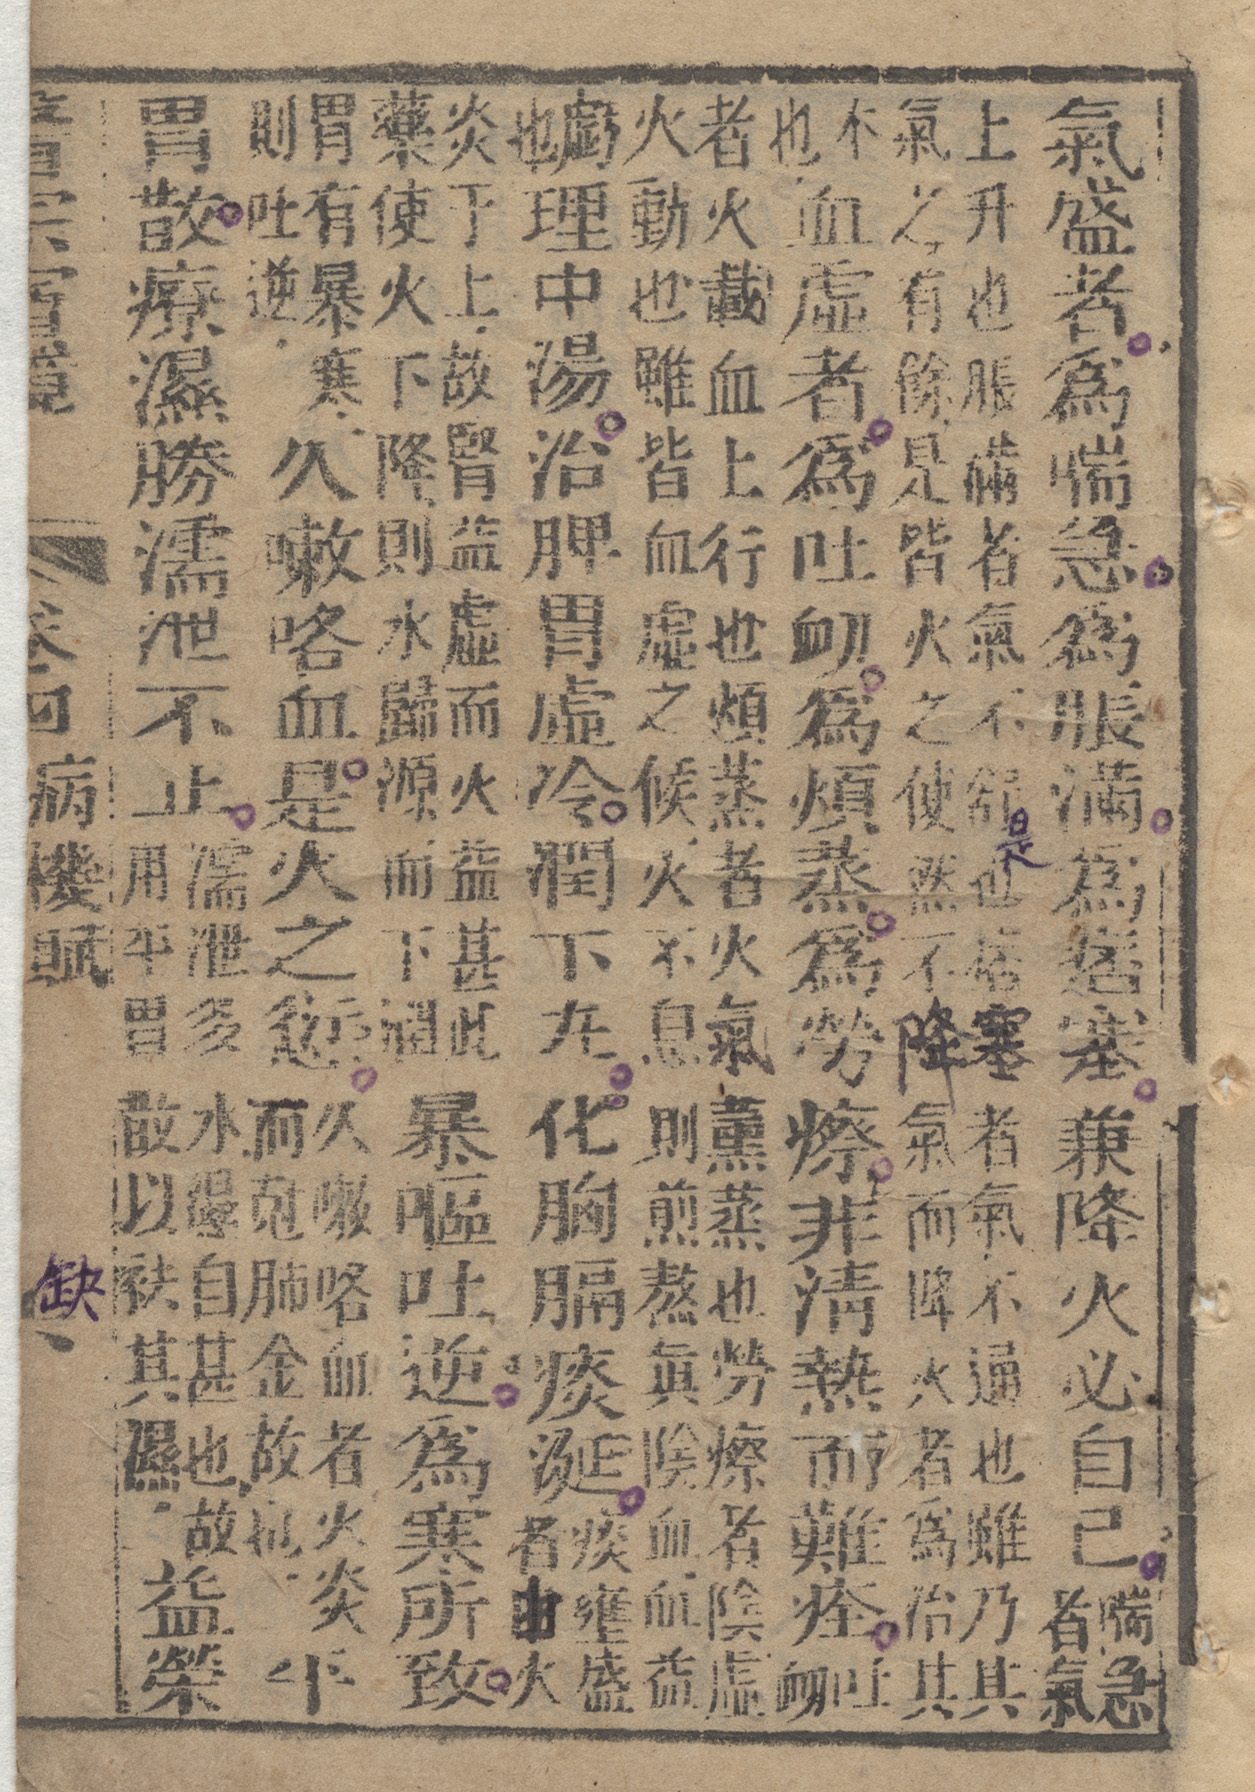 氣盛者爲喘急爲脹滿爲痞塞兼降火必自己喘急
者氣
上升也脹滿者氣不舒也痞塞者氣不通也雖乃其
氣之有餘是皆火之使然不降氣而降火者爲治其
本
也
血虛者爲吐衄爲煩蒸爲勞瘵非淸熱而難痊吐
衄
者火載血上行也煩蒸者火氣薰蒸也勞瘵者陰虛
火動也雖皆血虛之候火不息則煎熬眞陰血血益
虧
也
理中湯治脾胃虛冷潤下丸化胸膈痰涎痰壅盛
者由火
炎于上故腎益虛而火益甚此
藥使火下降則水歸源而下潤
暴嘔吐逆爲寒所致
胃有暴寒
則吐逆
久嗽咯血是火之愆久嗽咯血者火炎
而尅肺金故也
平
胃散療濕勝濡泄不止濡泄多水濕自甚也故
用平胃散以袪其濕
益榮
卷四 病機賦
缺
是